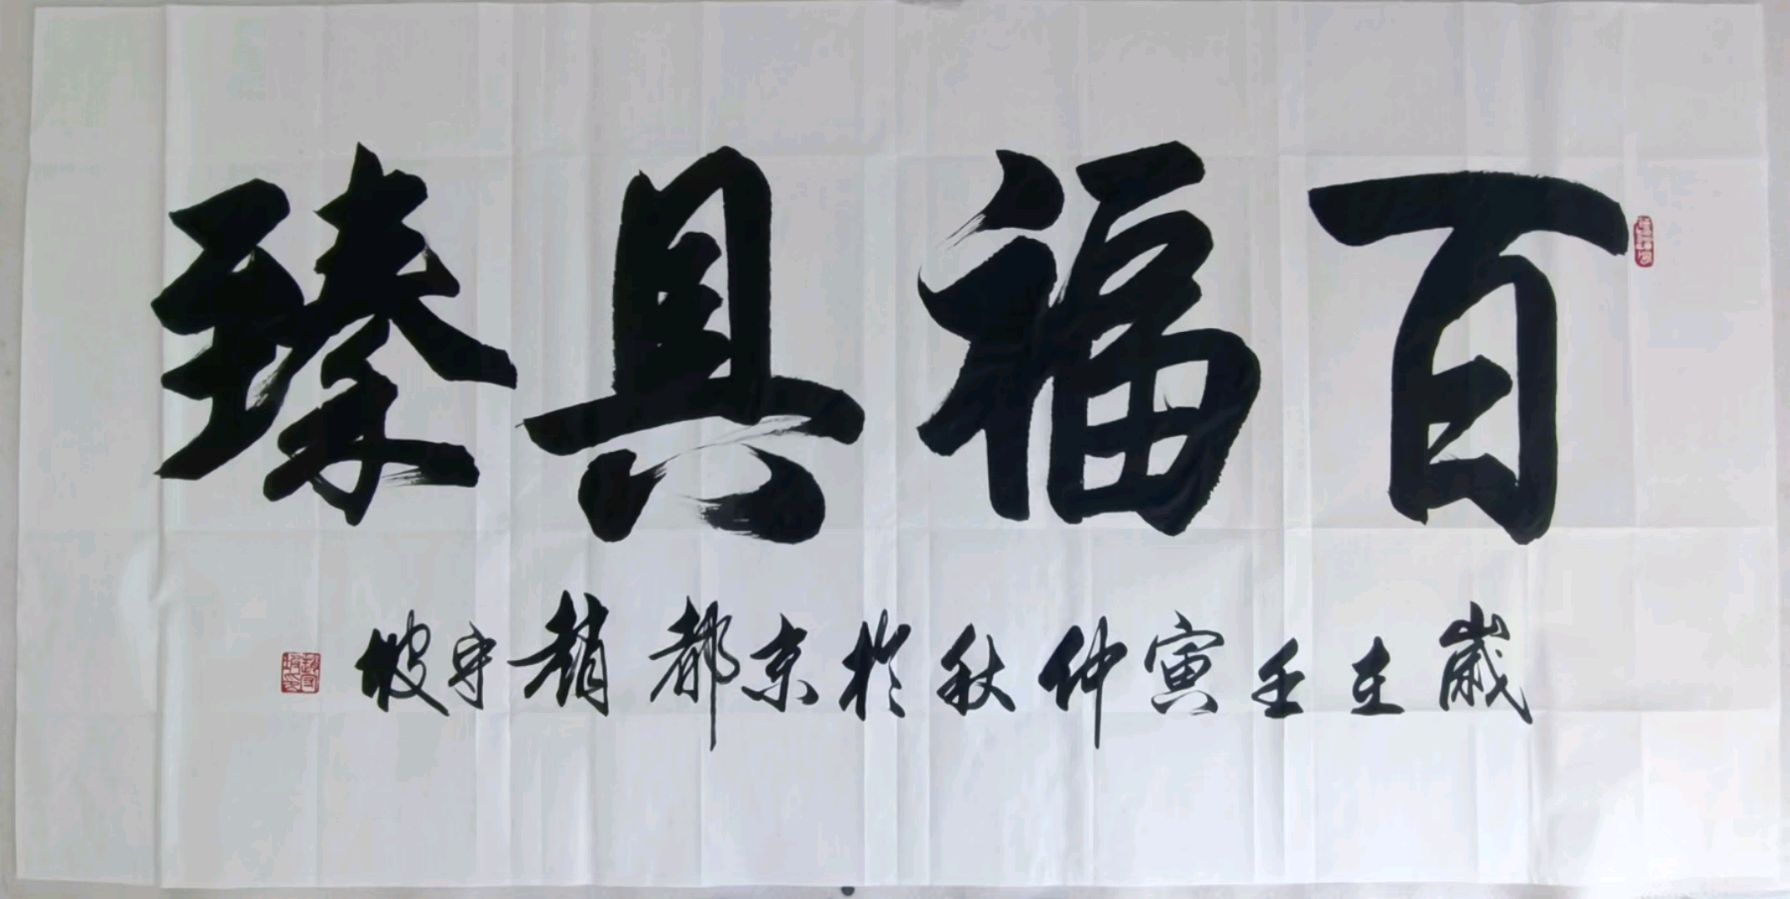 百福具臻
歲在壬寅仲秋於京都趙守坡